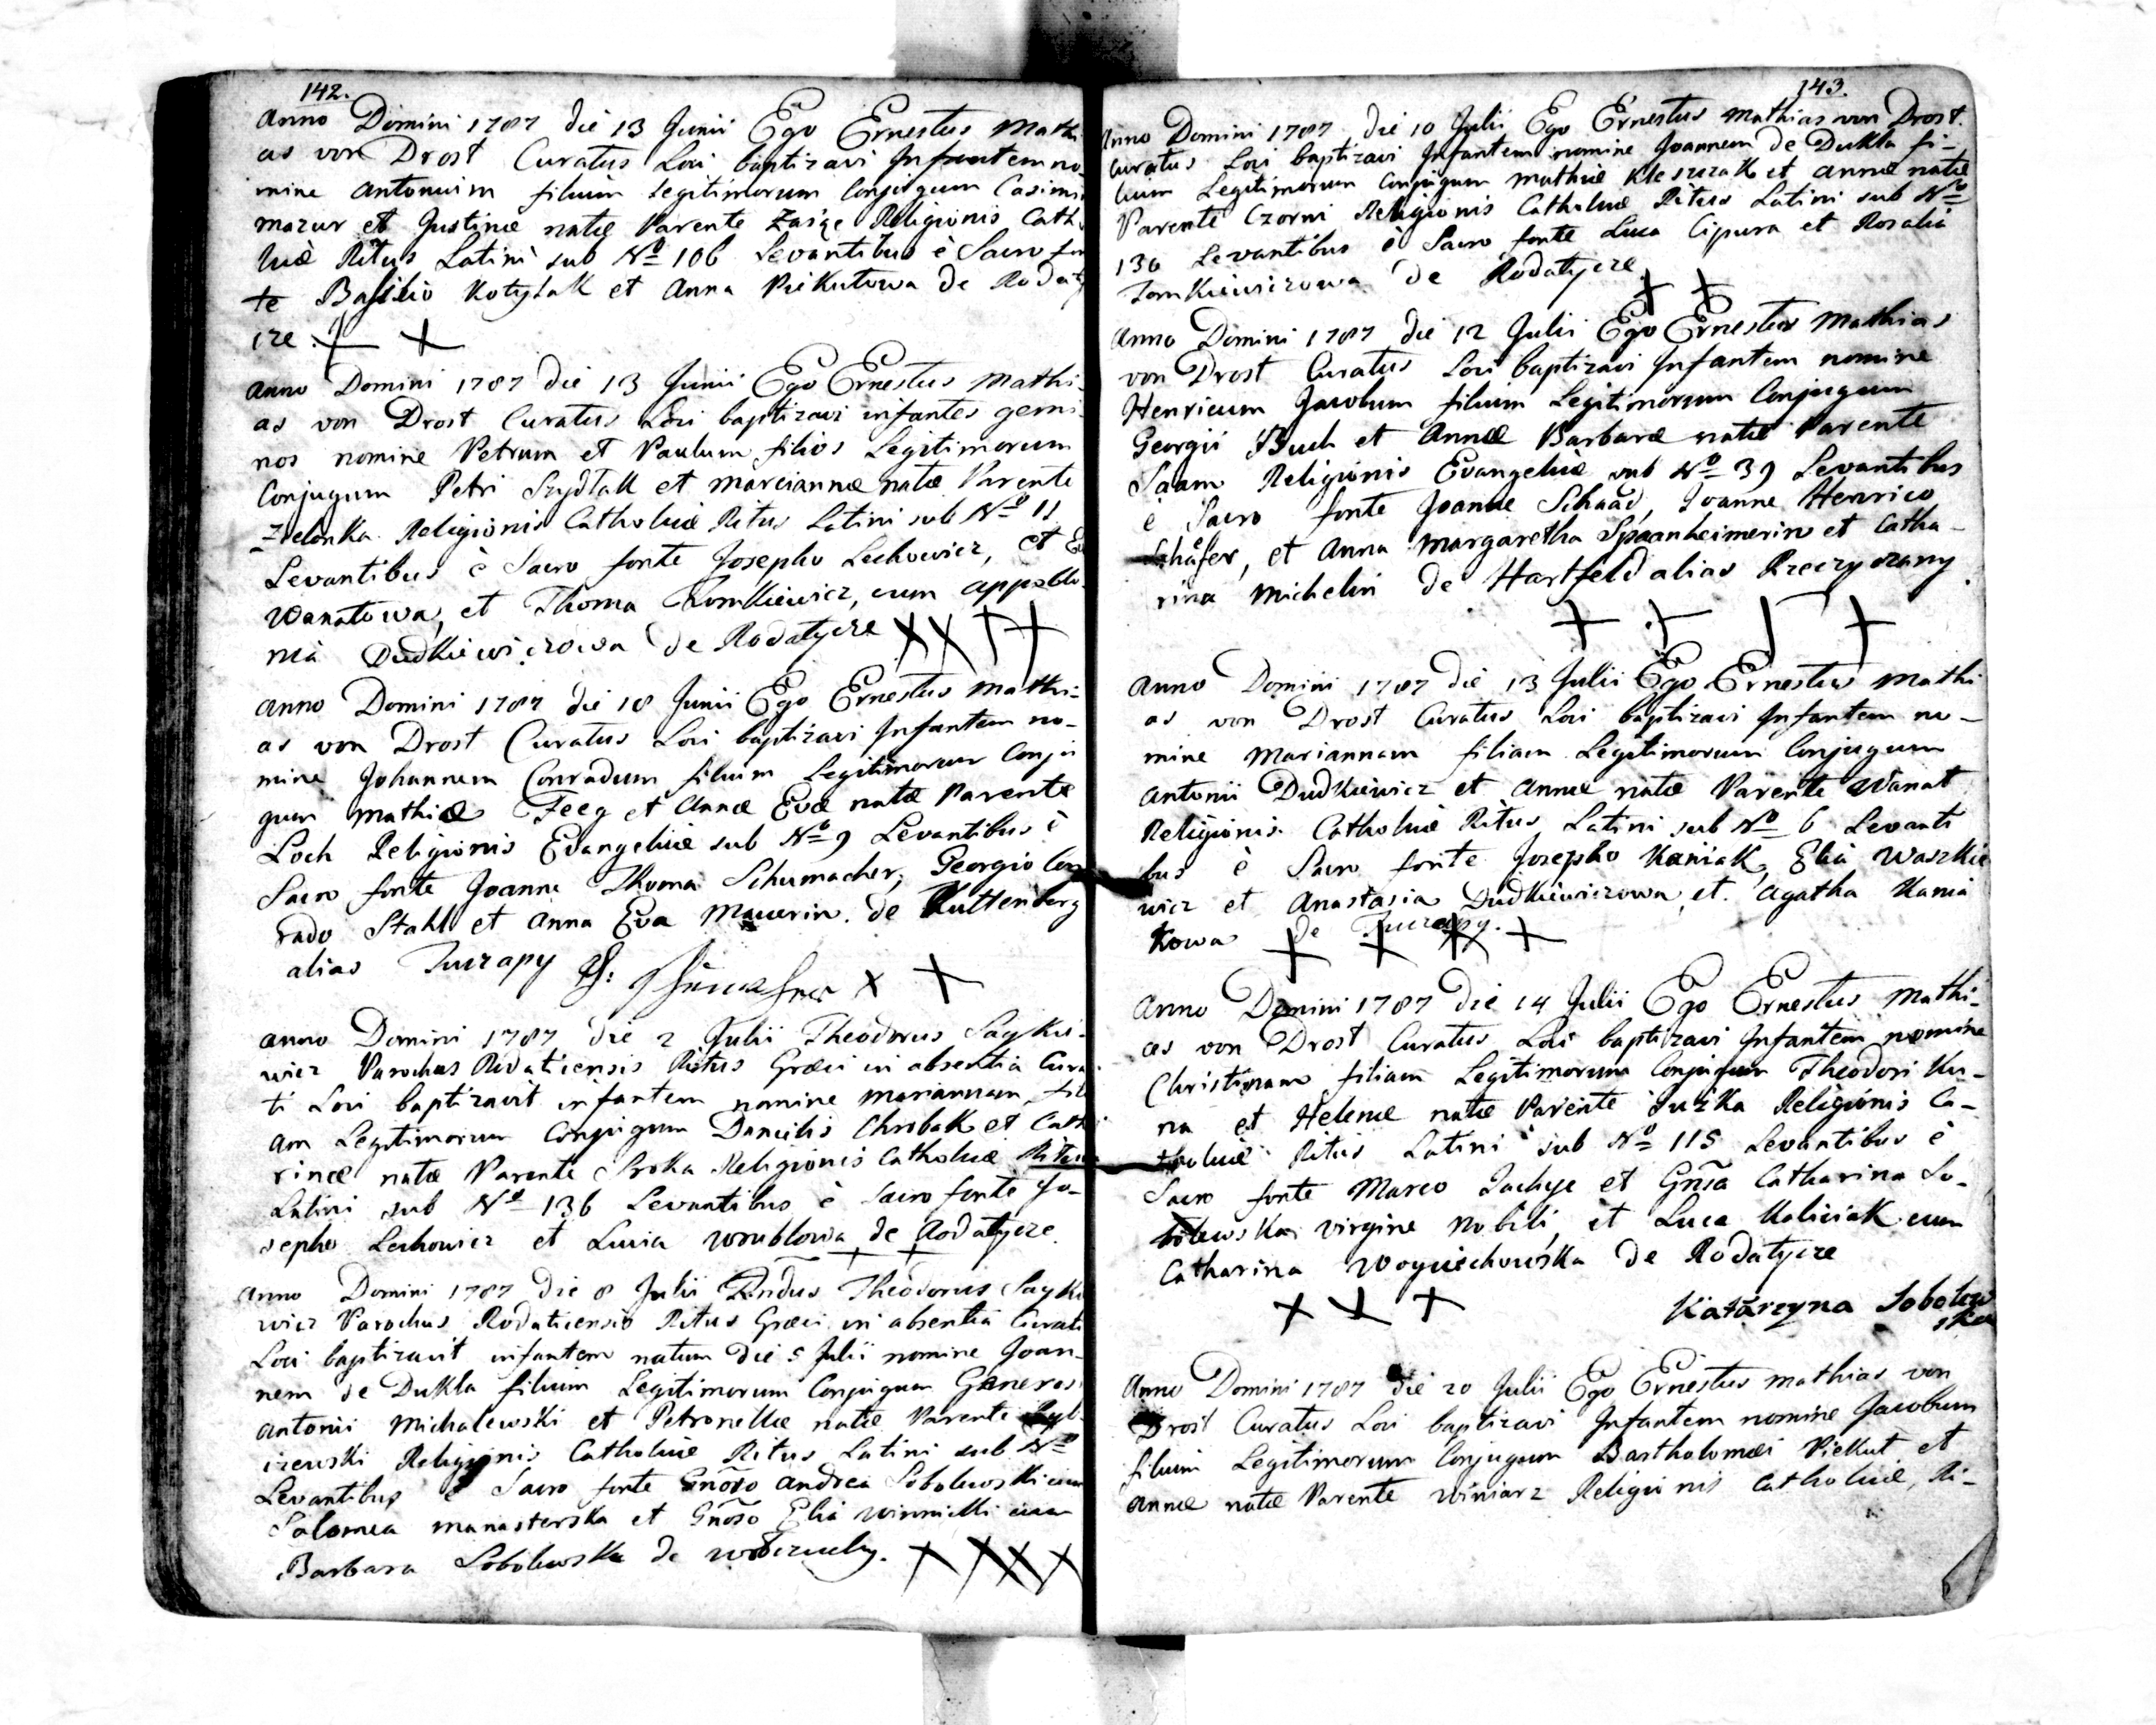 142.
Anno Domini 1787 die 13 Junii Ego Ernestus Mathi
as von Drost Curatus Loci baptizavi Infantem no
mine Antonium filium Legitimorum Conjugum Casimi
Mazur et Justinæ natæ Parente Religionis Catho
licæ Ritus Latini sub No 106 Levantibus è Sacro fon
te Basilio Kotylak et Anna Piekutowa de Rodaty
cze.
Anno Domini 1787 die 13 Junii Ego Ernestus Mathi-
as von Drost Curatus Loci baptizavi infantes gemi-
nos nomine Petrum et Paulum filios Legitimorum
Conjugum Petri Szydłak et Mariannæ natæ Parente
Zielonka Religionis Catholicæ Ritus Latini sub No 11
Levantibus è Sacro fonte Josepho Lechowicz, et
Wanatowa, et Thoma Tomkiewicz, cum Appollo-
nia Dudkiewiczowa de Rodatycze
Anno Domini 1787 die 18 Junii Ego Ernestus Mathi-
as von Drost Curatus Loci baptizavi Infantem no-
mine Johannem Conradum filium Legitimorum Conju
gum Mathiæ Feeg et Annæ Evæ natæ Parente
Loch Religionis Evangelicæ sub No 9 Levantibus è
Sacro fonte Joanne Thoma Schumacher, Georgio Con
rado Stahl et Anna Eva Mauerin. de Kuttenberg
alias Tuczapy
Anno Domini 1787 die 2 Julii Theodorus Saykie-
wicz Parochus Rodaticensis Ritus Græci in absentia Cura
ti Loci baptizavit infantem nomine Mariannam, fili
am Legitimorum Conjugum Danielis Chrobak et Catha
rinæ natæ Parente Sroka Religionis Catholicæ Ritus
Latini sub No 136 Levantibus è Sacro fonte Jo-
sepho Lechowicz et Lucia Wrublowa de Rodatycze.
Anno Domini 1787 die 8 Julii Rndus Theodorus Sayki
wicz Parochus Rodaticensis Ritus Græci in absentia Curati
Loci baptizavit infantem natum die 5 Julii nomine Joan-
nem de Dukla filium Legitimorum Conjugum Generosi
Antonii Michalewski et Petronellæ natæ Parente
Religionis Catholicæ Ritus Latini sub No
Levantibus è Sacro fonte Gnoso Andrea Sobolewski cum
Salomea Manasterska et Gnoso Elia Winnicki cum
Barbara Sobolewska de
143.
Anno Domini 1787 die 10 Julii Ego Ernestus Mathias von Drost
Curatus Loci baptizavi Infantem nomine Joannem de Dukla fi-
lium Legitimorum Conjugum Mathiæ Kleszczak et Annæ natæ
Parente Czorni Religionis Catholicæ Ritus Latini sub No
136 Levantibus è Sacro fonte Luca Cipura et Rosalia
Tomkiewiczowa de Rodatycze
Anno Domini 1787 die 12 Julii Ego Ernestus Mathias
von Drost Curatus Loci baptizavi Infantem nomine
Henricum Jacobum filium Legitimorum Conjugum
Georgii Buch et Annæ Barbaræ natæ Parente
Saam Religionis Evangelicæ sub No 39 Levantibus
è Sacro fonte Joanne Schaad, Joanne Henrico
Schäfer, et Anna Margaretha Spaanheimerin et Catha-
rina Michelin de Hartfeld alias Rzeczyczany.
Anno Domini 1787 die 13 Julii Ego Ernestus Mathi
as von Drost Curatus Loci baptizavi Infantem no-
mine Mariannam filiam Legitimorum Conjugum
Antonii Dudkiewicz et Annæ natæ Parente Wanat
Religionis Catholicæ Ritus Latini sub No 6 Levanti
bus è Sacro fonte Josepho Kaniak, Elia Waszkie
wicz et Anastasia Dudkiewiczowa et Agatha Kania
kowa de Tuczapy.
Anno Domini 1787 die 14 Julii Ego Ernestus Mathi-
as von Drost Curatus Loci baptizavi Infantem nomine
Christinam filiam Legitimorum Conjugum Theodori Ku-
na et Helenæ natæ Parente Religionis Ca-
tholicæ Ritus Latini sub No 115 Levantibus è
Sacro fonte Marco et Gnsa Catharina So-
bolewska virgine Nobili, et Luca Kaliciak cum
Catharina Woyciechowska de Rodatycze
Katarzyna Sobolew
ska
Anno Domini 1787 die 20 Julii Ego Ernestus Mathias von
Drost Curatus Loci baptizavi Infantem nomine Jacobum
filium Legitimorum Conjugum Bartholomæi Piekut et
Annæ natæ Parente Winiarz Religionis Catholicæ, Ri-